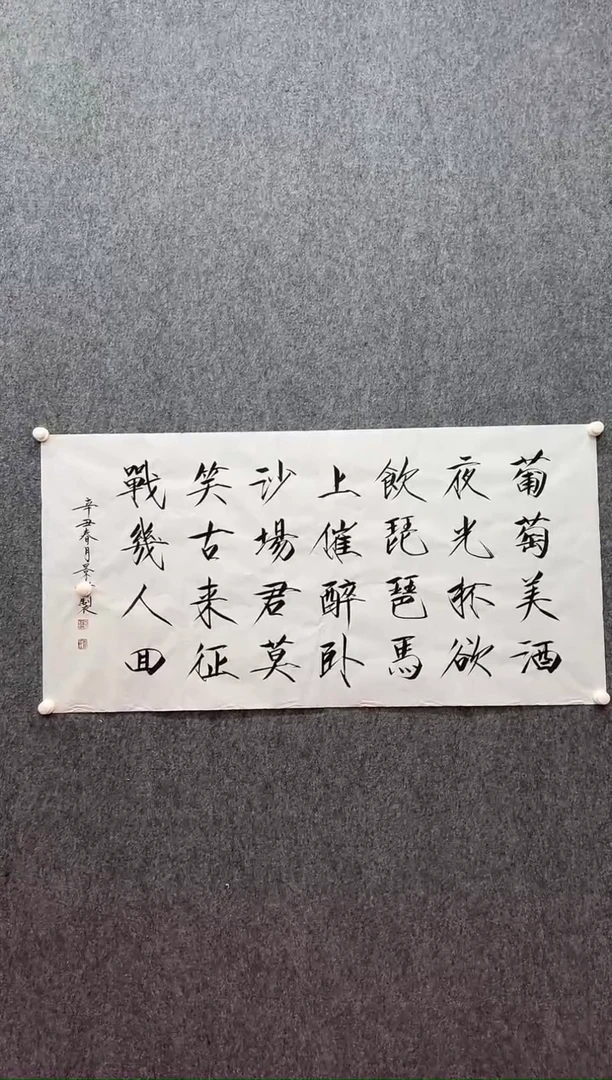 葡萄美酒
夜光杯欲
飲琵琶馬
上催醉卧
沙場君莫
笑古来征
戰幾人回
辛丑春月